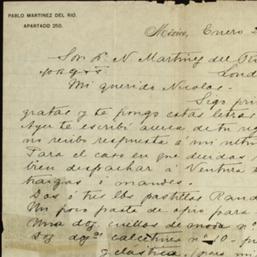 PABLO MARTINEZ DEL RIO.
APARTADO 250.
México, Enero 2
Sor Dn N Martinez del Rio
Lond
Mi querido Nicolas.
Sigo pri
gratas y te pongo estas letras
Ayer te escribí acerca de tu re
no recibo respuesta á mi últim
Para el caso en que decidas,
bien despachar á Ventura
traigas ó mandes.
Dos ó tres los pastillas Rand
Un poco pasta de para
Una doz. cuellos de moda no
Dz dozs calcetines no 10 - pr
y elastica, para mi